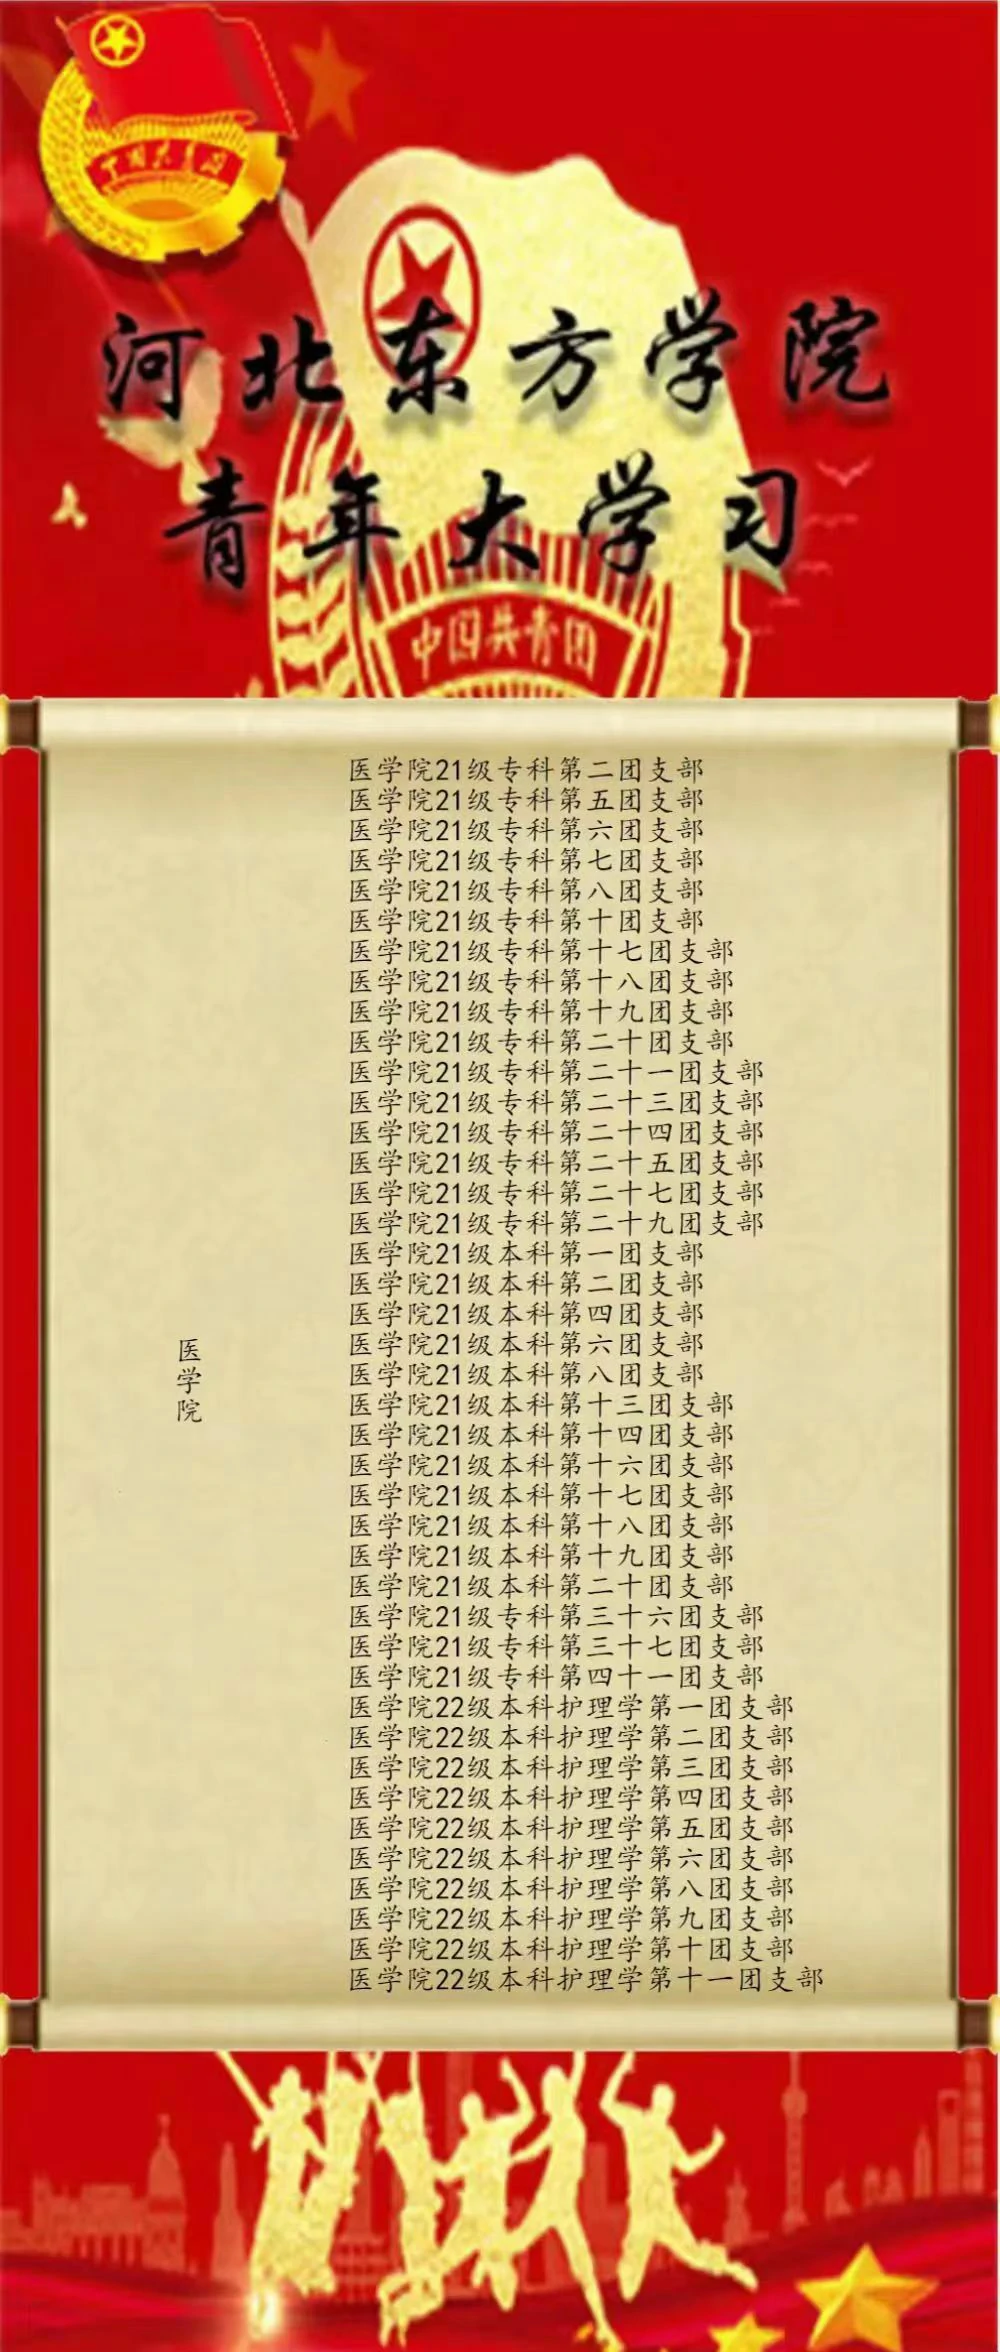 中国共青团
河北东方学院
青年大学习
中国共青团
医学院
医学院21级专科第二团支部
医学院21级专科第五团支部
医学院21级专科第六团支部
医学院21级专科第七团支部
医学院21级专科第八团支部
医学院21级专科第十团支部
医学院21级专科第十七团支部
医学院21级专科第十八团支部
医学院21级专科第十九团支部
医学院21级专科第二十团支部
医学院21级专科第二十一团支部
医学院21级专科第二十三团支部
医学院21级专科第二十四团支部
医学院21级专科第二十五团支部
医学院21级专科第二十七团支部
医学院21级专科第二十九团支部
医学院21级本科第一团支部
医学院21级本科第二团支部
医学院21级本科第四团支部
医学院21级本科第六团支部
医学院21级本科第八团支部
医学院21级本科第十三团支部
医学院21级本科第十四团支部
医学院21级本科第十六团支部
医学院21级本科第十七团支部
医学院21级本科第十八团支部
医学院21级本科第十九团支部
医学院21级本科第二十团支部
医学院21级专科第三十六团支部
医学院21级专科第三十七团支部
医学院21级专科第四十一团支部
医学院22级本科护理学第一团支部
医学院22级本科护理学第二团支部
医学院22级本科护理学第三团支部
医学院22级本科护理学第四团支部
医学院22级本科护理学第五团支部
医学院22级本科护理学第六团支部
医学院22级本科护理学第八团支部
医学院22级本科护理学第九团支部
医学院22级本科护理学第十团支部
医学院22级本科护理学第十一团支部